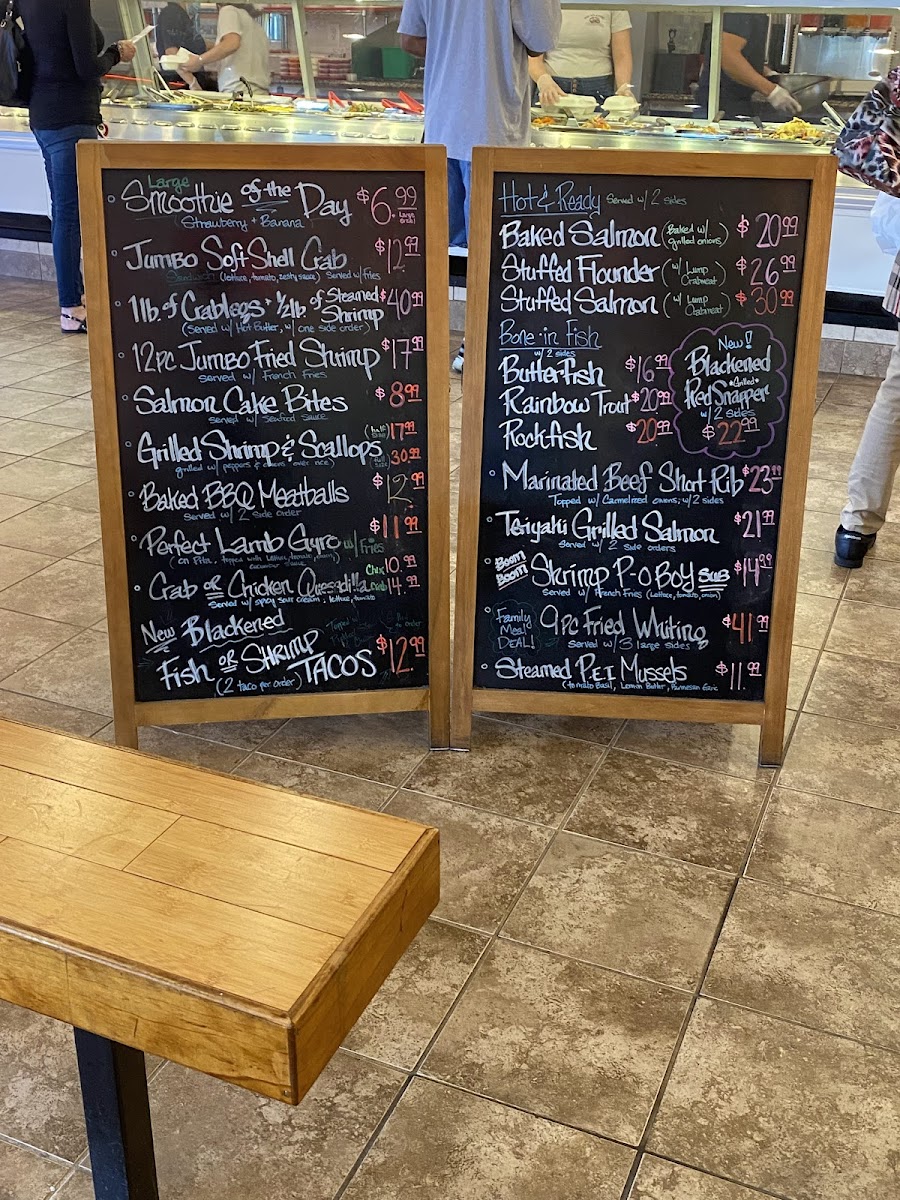 Large
Smoothie of the Day $6.99
Strawberry + Banana Large only!
Jumbo Soft Shell Crab $12.99
Sandwich (lettuce, tomato, zesty sauce) Served w/ fries
1lb. of Crablegs + 1/2 lb of Steamed Shrimp $40.99
(Served w/ Hot Butter, w/ one side order)
12pc Jumbo Fried Shrimp $17.99
Served w/ French Fries
Salmon Cake Bites $8.99
Served w/ Seafood Sauce
Grilled Shrimp & Scallops (half size) 17.99
grilled w/ peppers & onions over rice) (full size) 30.99
Baked BBQ Meatballs $12.99
Served w/ 2 Side Order
Perfect Lamb Gyro w/ fries $11.99
(on Pita, topped with lettuce, tomato, onion,
Cucumber Sauce
Crab or Chicken Quesadilla Chix 10.99
Crab 14.99
Served w/ spicy sour cream, lettuce, tomato
New Blackened
Fish or Shrimp Tacos $12.99
(2 taco per order)
Hot & Ready Served w/ 2 sides
Baked Salmon (Baked w/ grilled onions) $20.99
Stuffed Flounder (w/ Lump Crabmeat) $26.99
Stuffed Salmon (w/ Lump Crabmeat) $30.99
Bone-in Fish
w/ 2 sides
Butterfish $16.99
Rainbow Trout $20.99
Rockfish $20.99
New!
Blackened
*Grilled*
Red Snapper
w/ 2 sides
$22.99
Marinated Beef Short Rib $23.99
Topped w/ Carmelized onions, w/ 2 sides
Teriyaki Grilled Salmon $21.99
Served w/ 2 side orders
Boom Boom Shrimp P-o Boy Sub $14.99
Served w/ French Fries (lettuce, tomato, onion)
Family Meal Deal! 9pc Fried Whiting $41.99
Served w/ 3 large sides
Steamed P.E.I Mussels $11.99
(tomato Basil, Lemon Butter, Parmesan Garlic